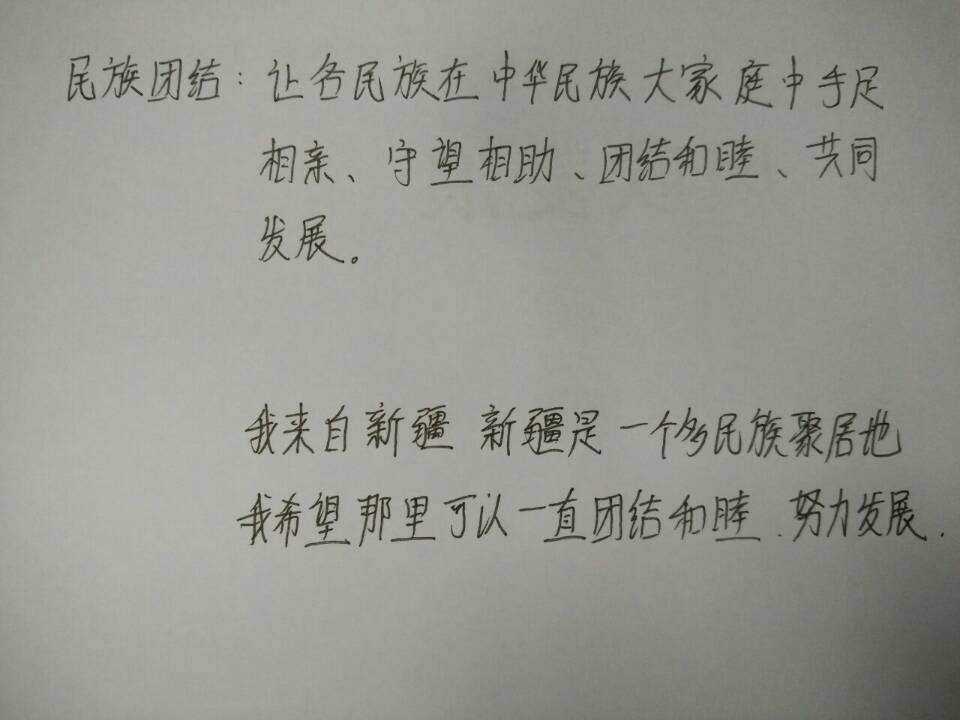 民族团结：让各民族在中华民族大家庭中手足
相亲、守望相助、团结和睦、共同
发展。
我来自新疆 新疆是一个多民族聚居地
我希望那里可以一直团结和睦.努力发展.